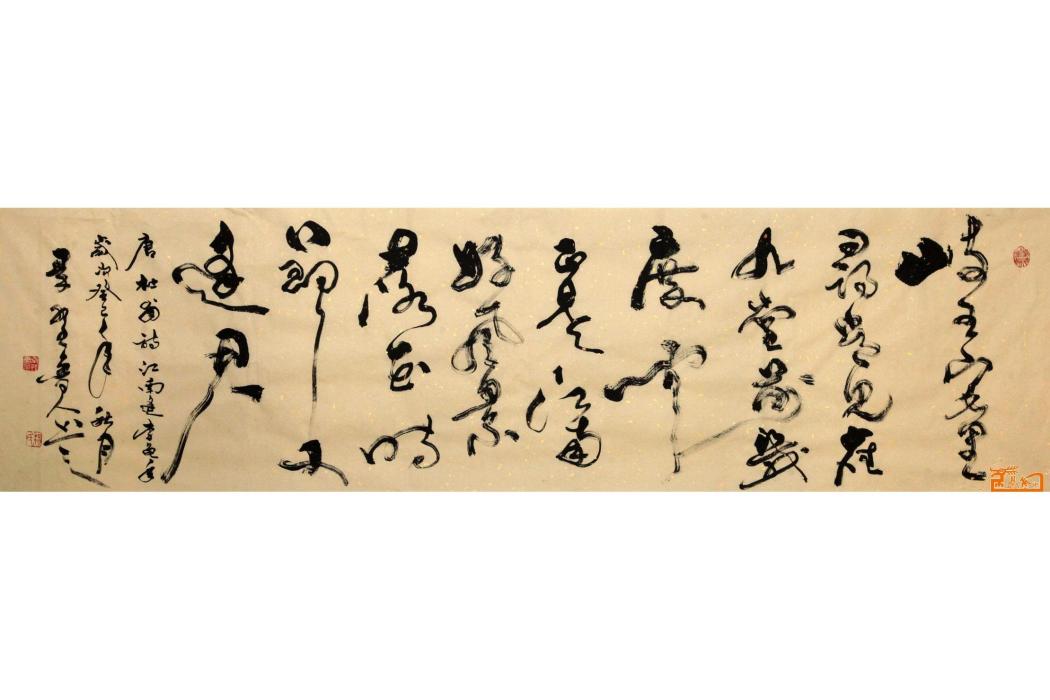 岐王宅里
尋常見崔
九堂前幾
度聞
正是江南
好風景
落花時
節又
逢君
唐杜甫詩江南逢李龜年
歲次癸巳年秋月